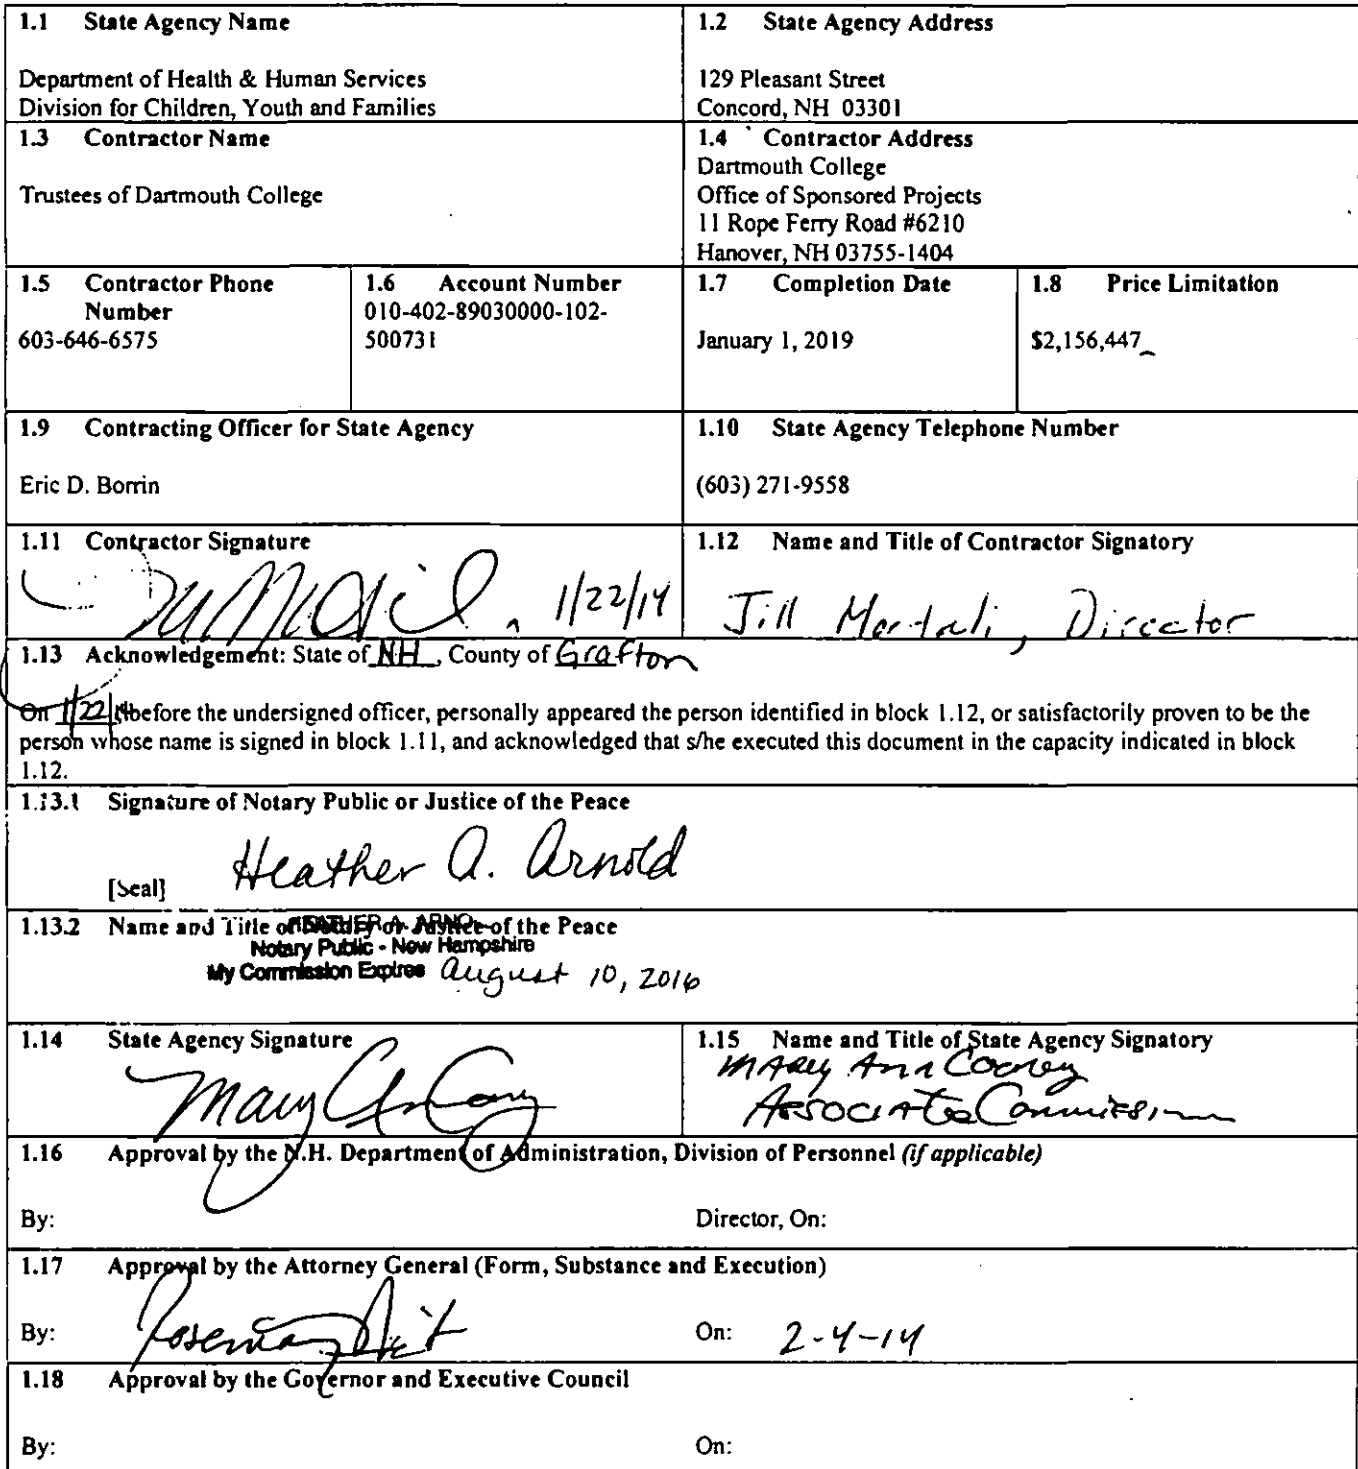 1.1 State Agency Name
Department of Health & Human Services
Division for Children, Youth and Families
1.2 State Agency Address
129 Pleasant Street
Concord, NH 03301
1.3 Contractor Name
Trustees of Dartmouth College
1.4 Contractor Address
Dartmouth College
Office of Sponsored Projects
11 Rope Ferry Road #6210
Hanover, NH 03755-1404
1.5 Contractor Phone
Number
603-646-6575
1.6 Account Number
010-402-89030000-102-
500731
1.7 Completion Date
January 1, 2019
1.8 Price Limitation
$2,156,447
1.9 Contracting Officer for State Agency
Eric D. Borrin
1.10 State Agency Telephone Number
(603) 271-9558
1.11 Contractor Signature
1/22/14
1.12 Name and Title of Contractor Signatory
Jill Mortali, Director
1.13 Acknowledgement: State of NH, County of Grafton
On 1/22/14 before the undersigned officer, personally appeared the person identified in block 1.12, or satisfactorily proven to be the
person whose name is signed in block 1.11, and acknowledged that s/he executed this document in the capacity indicated in block
1.12.
1.13.1 Signature of Notary Public or Justice of the Peace
Heather A. Arnold
[Seal]
1.13.2 Name and Title of Notary or Justice of the Peace
HEATHER A. ARNO
Notary Public - New Hampshire
My Commission Expires August 10, 2016
1.14 State Agency Signature
1.15 Name and Title of State Agency Signatory
Mary Ann Cooney
Associate Commissioner
1.16 Approval by the N.H. Department of Administration, Division of Personnel (if applicable)
By:
Director, On:
1.17 Approval by the Attorney General (Form, Substance and Execution)
By: Rosemary
On: 2-4-14
1.18 Approval by the Governor and Executive Council
By:
On: